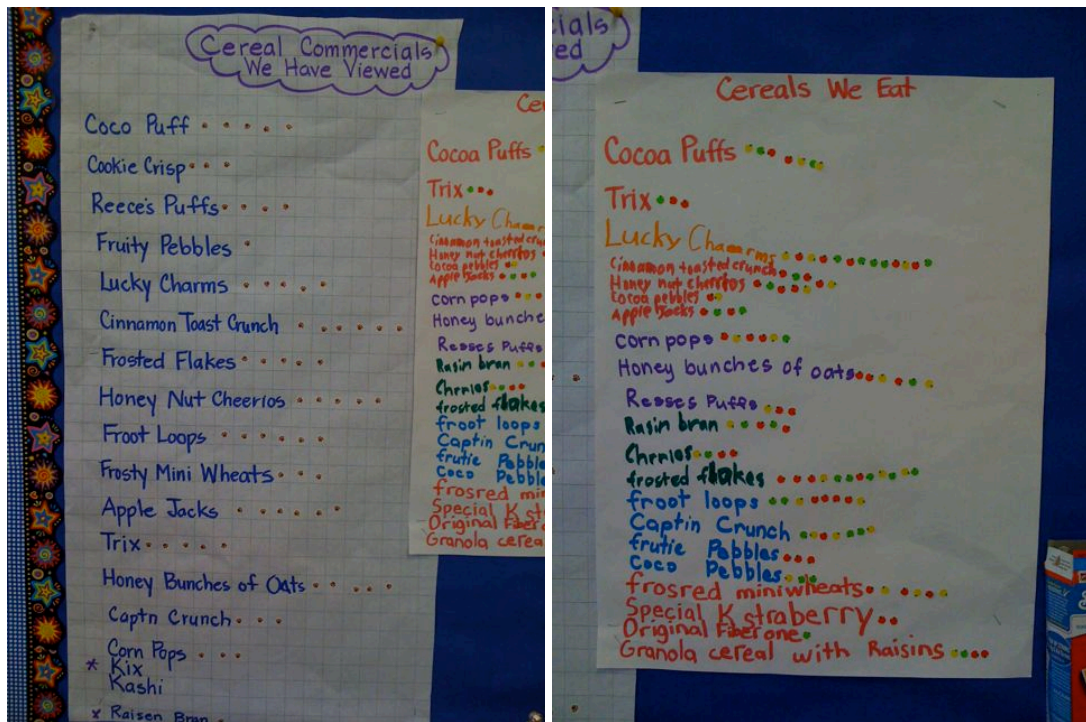 Cereal Commercials
We Have Viewed
Coco Puff
Cookie Crisp
Reece's Puffs
Fruity Pebbles
Lucky Charms
Cinnamon Toast Crunch
Frosted Flakes
Honey Nut Cheerios
Froot Loops
Frosty Mini Wheats
Apple Jacks
Trix
Honey Bunches of Oats
Captn Crunch
Corn Pops
* Kix
Kashi
* Raisen Bran
Ce
Cocoa Puffs
Trix
Lucky Charm
Cinnamon toasted crun
Honey nut cherrios
Cocoa pebbles
Apple Jacks
corn pops
Honey bunche
Resses Puffs
Rasin bran
Chrrios
frosted flakes
froot loops
Captin Crun
frutie Pebble
Coco Pebb
frosred min
Special K st
Original Fiber
Granola cerea
ials
ed
Cereals We Eat
Cocoa Puffs
Trix
Lucky Chaarms
Cinnamon toasted crunch
Honey nut cherrios
Cocoa pebbles
Apple Jacks
corn pops
Honey bunches of oats
Resses Puffs
Rasin bran
Chrrios
frosted flakes
froot loops
Captin Crunch
frutie Pebbles
Coco Pebbles
frosred miniwheats
Special K straberry
Original Fiber one
Granola cereal with Raisins